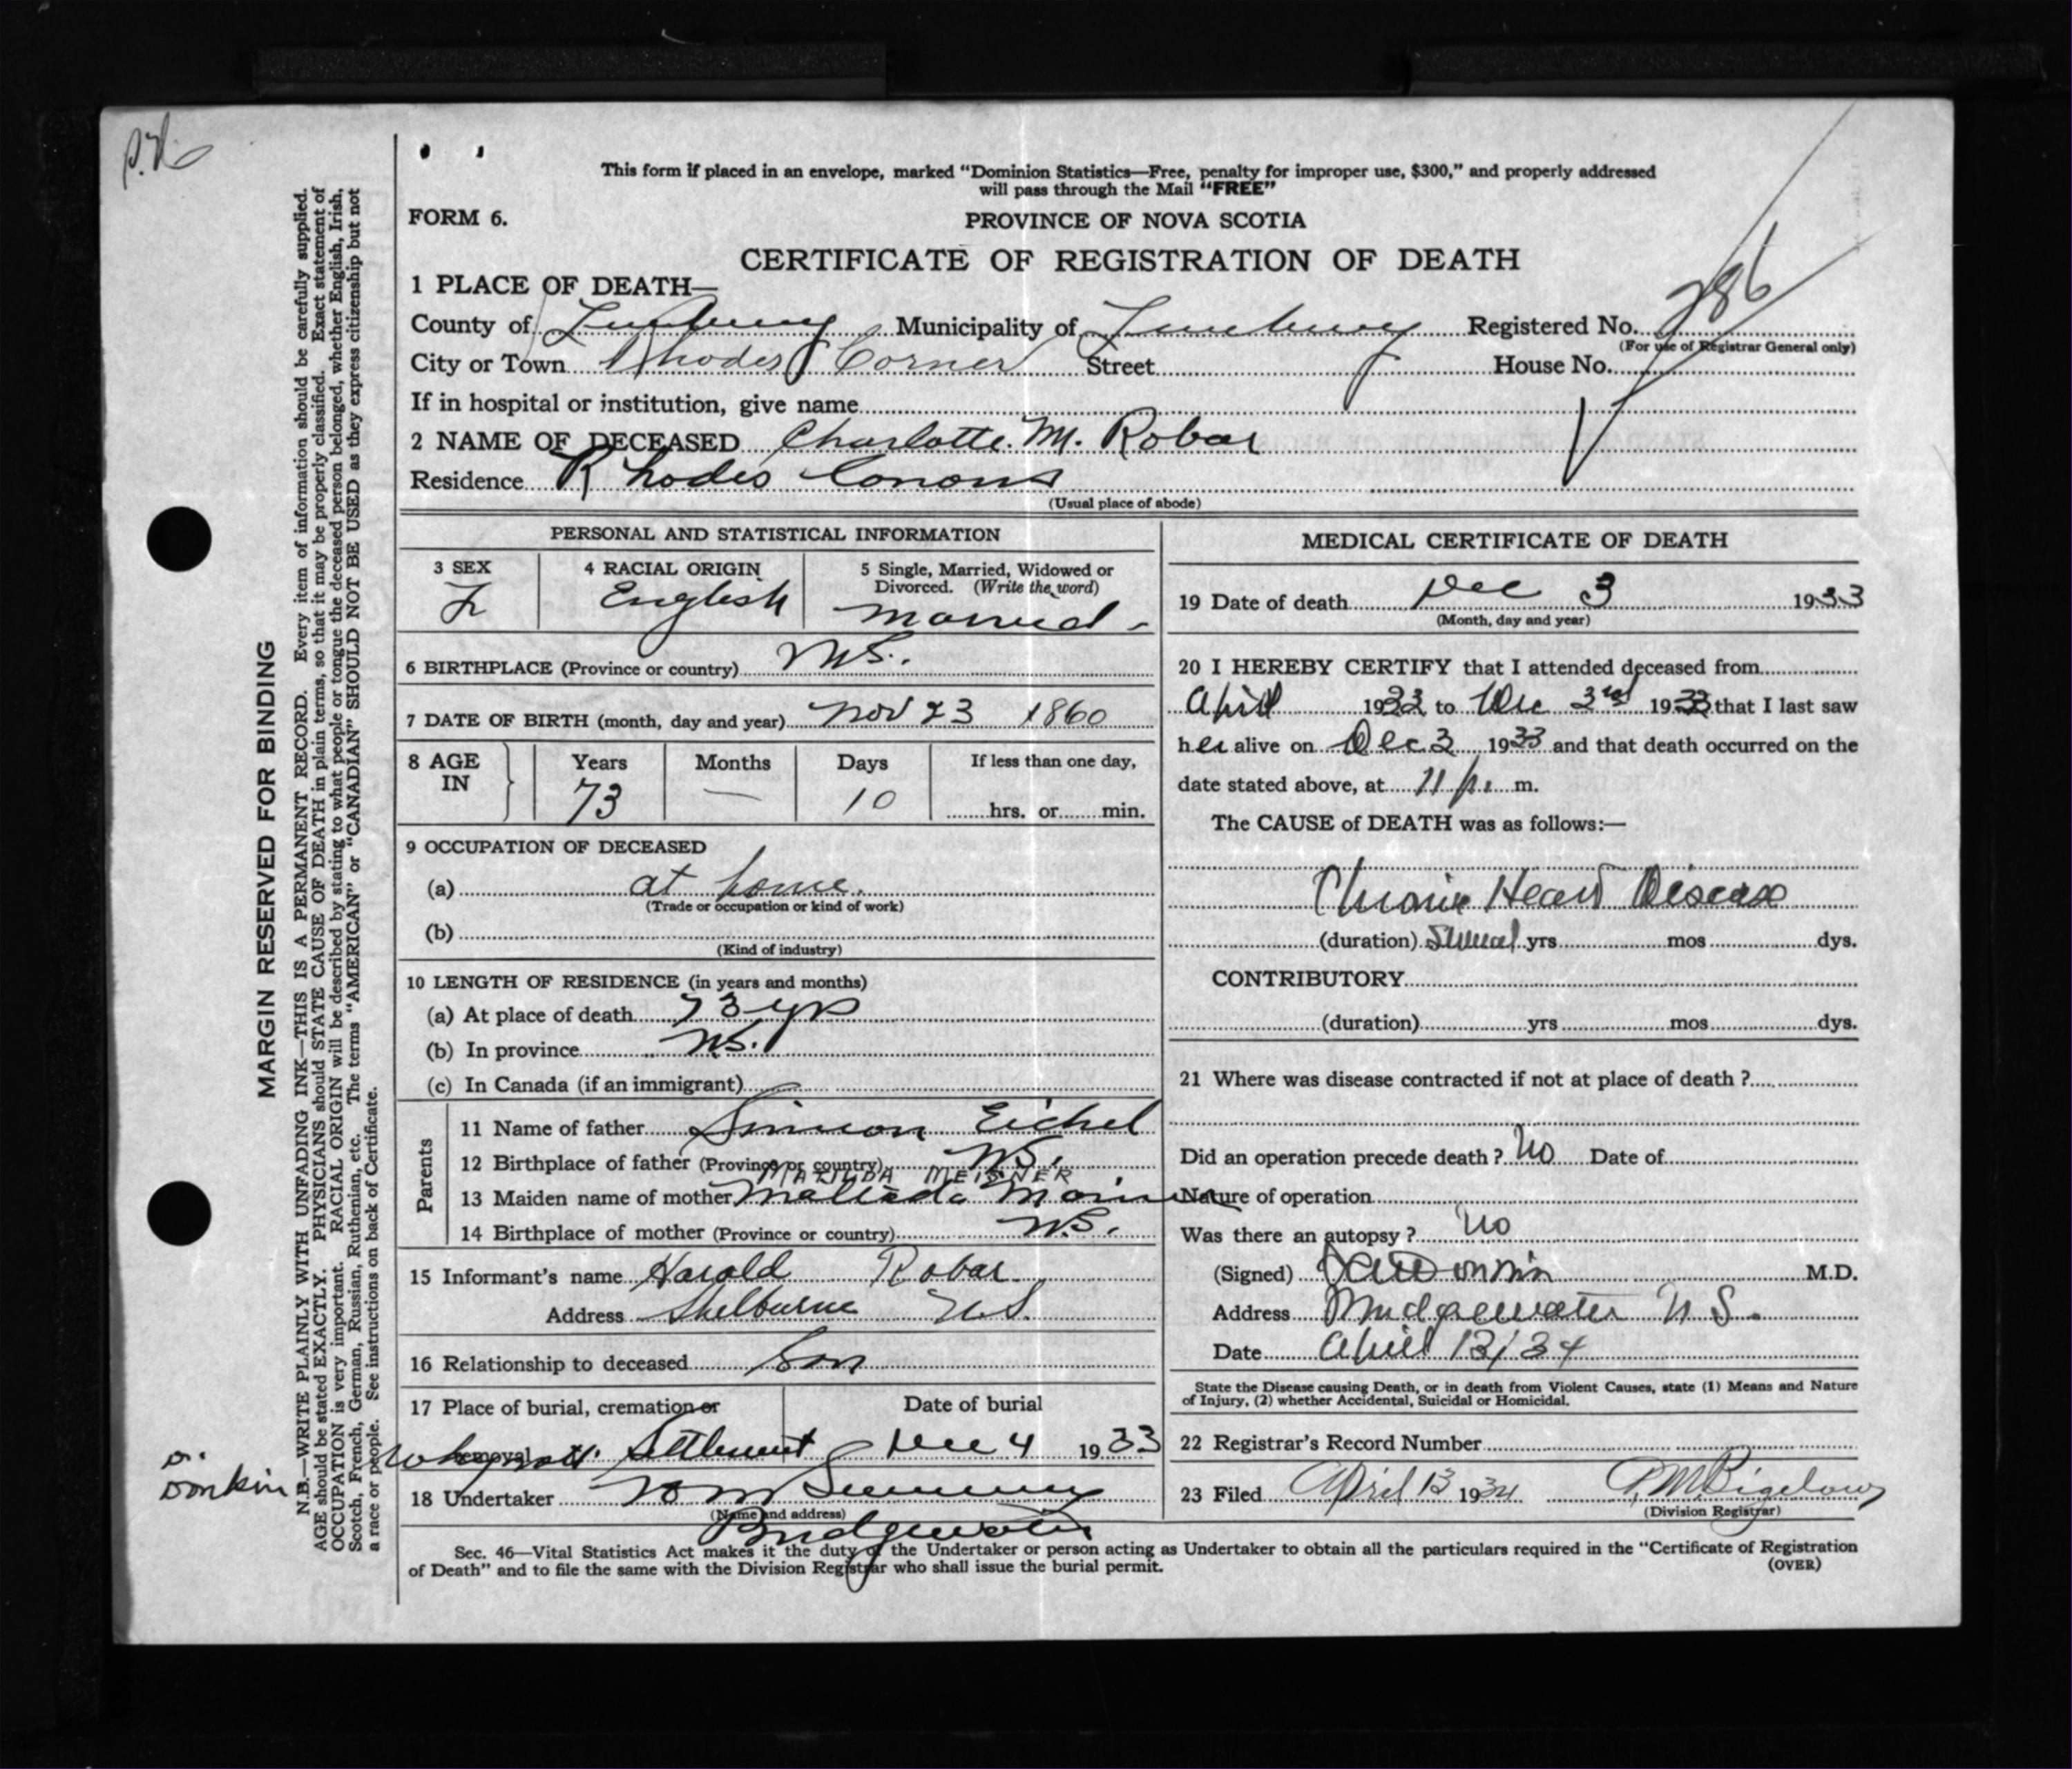 P.H.
This form if placed in an envelope, marked "Dominion Statistics—Free, penalty for improper use, $300," and properly addressed
will pass through the Mail "FREE"
FORM 6.
PROVINCE OF NOVA SCOTIA
CERTIFICATE OF REGISTRATION OF DEATH
1 PLACE OF DEATH—
County of Lunenburg Municipality of Lunenburg Registered No. 286
(For use of Registrar General only)
City or Town Rhodes Corner Street House No.
If in hospital or institution, give name
2 NAME OF DECEASED Charlotte M. Robar
Residence Rhodes
(Usual place of abode)
PERSONAL AND STATISTICAL INFORMATION
3 SEX F
4 RACIAL ORIGIN English
5 Single, Married, Widowed or
Divorced. (Write the word)
married
6 BIRTHPLACE (Province or country) NS.
7 DATE OF BIRTH (month, day and year) Nov 23 1860
8 AGE IN Years 73 Months — Days 10 If less than one day,
hrs. or min.
9 OCCUPATION OF DECEASED
(a) at home.
(Trade or occupation or kind of work)
(b)
(Kind of industry)
10 LENGTH OF RESIDENCE (in years and months)
(a) At place of death 73 yrs
(b) In province NS.
(c) In Canada (if an immigrant)
Parents
11 Name of father Simeon Eichel
12 Birthplace of father (Province or country) NS.
MATILDA MEISNER
13 Maiden name of mother
14 Birthplace of mother (Province or country) NS.
15 Informant's name Harold Robar
Address Shelburne NS.
16 Relationship to deceased Son
17 Place of burial, cremation or
removal Settlement
Date of burial
Dec 4 1933
18 Undertaker
(Name and address)
Bridgewater
MEDICAL CERTIFICATE OF DEATH
19 Date of death Dec 3 1933
(Month, day and year)
20 I HEREBY CERTIFY that I attended deceased from
April 1933 to Dec 3rd 1933 that I last saw
her alive on Dec 3 1933 and that death occurred on the
date stated above, at 11 p. m.
The CAUSE of DEATH was as follows:—
Chronic Heart Disease
(duration) Several yrs mos dys.
CONTRIBUTORY
(duration) yrs mos dys.
21 Where was disease contracted if not at place of death ?
Did an operation precede death ? No Date of
Nature of operation
Was there an autopsy ? No
(Signed) M.D.
Address Bridgewater N.S.
Date April 13/34
State the Disease causing Death, or in death from Violent Causes, state (1) Means and Nature
of Injury, (2) whether Accidental, Suicidal or Homicidal.
22 Registrar's Record Number
23 Filed April 13 1934 P. M. Bigelow
(Division Registrar)
Sec. 46—Vital Statistics Act makes it the duty of the Undertaker or person acting as Undertaker to obtain all the particulars required in the "Certificate of Registration
of Death" and to file the same with the Division Registrar who shall issue the burial permit.
(OVER)
MARGIN RESERVED FOR BINDING
N.B.—WRITE PLAINLY WITH UNFADING INK—THIS IS A PERMANENT RECORD. Every item of information should be carefully supplied.
AGE should be stated EXACTLY. PHYSICIANS should STATE CAUSE OF DEATH in plain terms, so that it may be properly classified. Exact statement of
OCCUPATION is very important. RACIAL ORIGIN will be described by stating to what people or tongue the deceased person belonged, whether English, Irish,
Scotch, French, German, Russian, Ruthenian, etc. The terms "AMERICAN" or "CANADIAN" SHOULD NOT BE USED as they express citizenship but not
a race or people. See instructions on back of Certificate.
Donkin